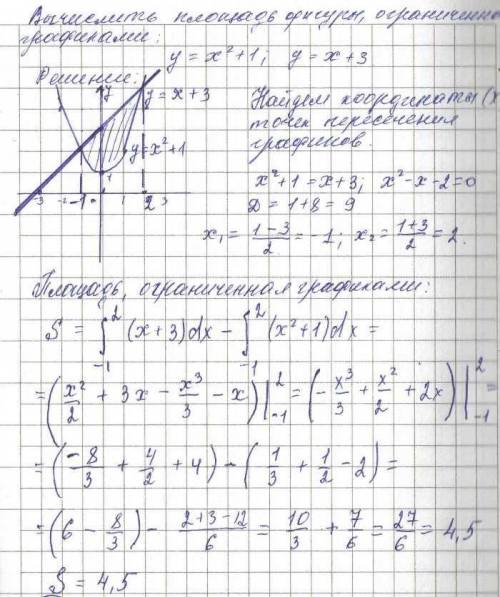 Вычислить площадь фигуры, ограниченно
графиками:
y = x² + 1; y = x + 3
Решение:
y
y = x + 3
y = x² + 1
1
-3 -2 -1 0 1 2 3
Найдем координаты (x
точек пересечения
графиков.
x² + 1 = x + 3; x² - x - 2 = 0
D = 1 + 8 = 9
x₁ = (1 - 3)/2 = -1; x₂ = (1 + 3)/2 = 2.
Площадь, ограниченная графиками:
S = ∫₋₁² (x + 3) dx - ∫₋₁² (x² + 1) dx =
= (x²/2 + 3x - x³/3 - x) |₋₁² = (-x³/3 + x²/2 + 2x) |₋₁² =
= (-8/3 + 4/2 + 4) - (1/3 + 1/2 - 2) =
= (6 - 8/3) - (2 + 3 - 12)/6 = 10/3 + 7/6 = 27/6 = 4,5
S = 4,5